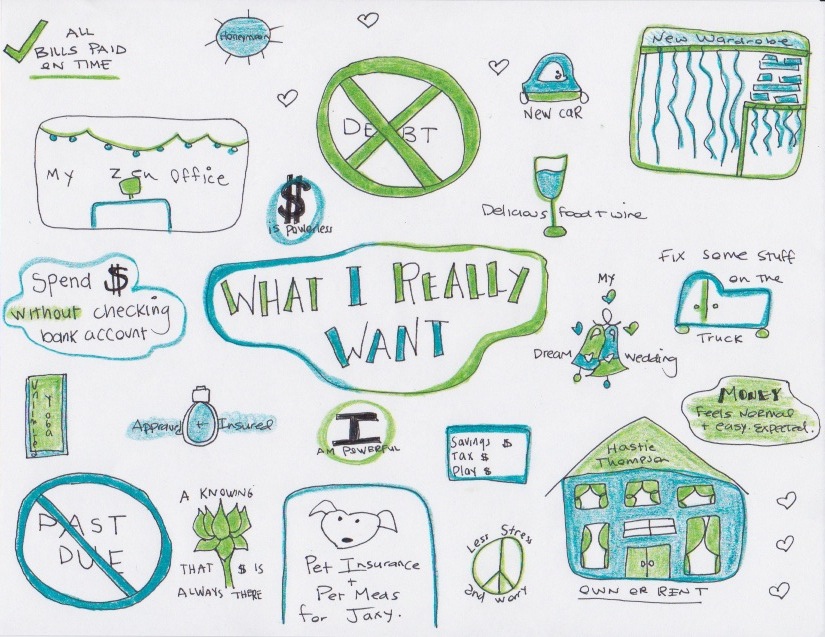 ALL
BILLS PAID
ON TIME
Honeymoon
DEBT
NEW CAR
New Wardrobe
My Zen Office
$
is powerless
Delicious food + wine
Spend $
without checking
bank account
WHAT I REALLY
WANT
MY
Dream Wedding
Fix some stuff
on the
Truck
MONEY
Feels Normal
+ easy. Expected.
Unlimited
Yoga
Approved + Insured
I
AM POWERFUL
Savings $
Tax $
Play $
Hastie
Thompson
OWN OR RENT
PAST
DUE
A KNOWING
THAT $ IS
ALWAYS THERE
Pet Insurance
+
Pet Meds
for Jaxy.
Less Stress
and worry